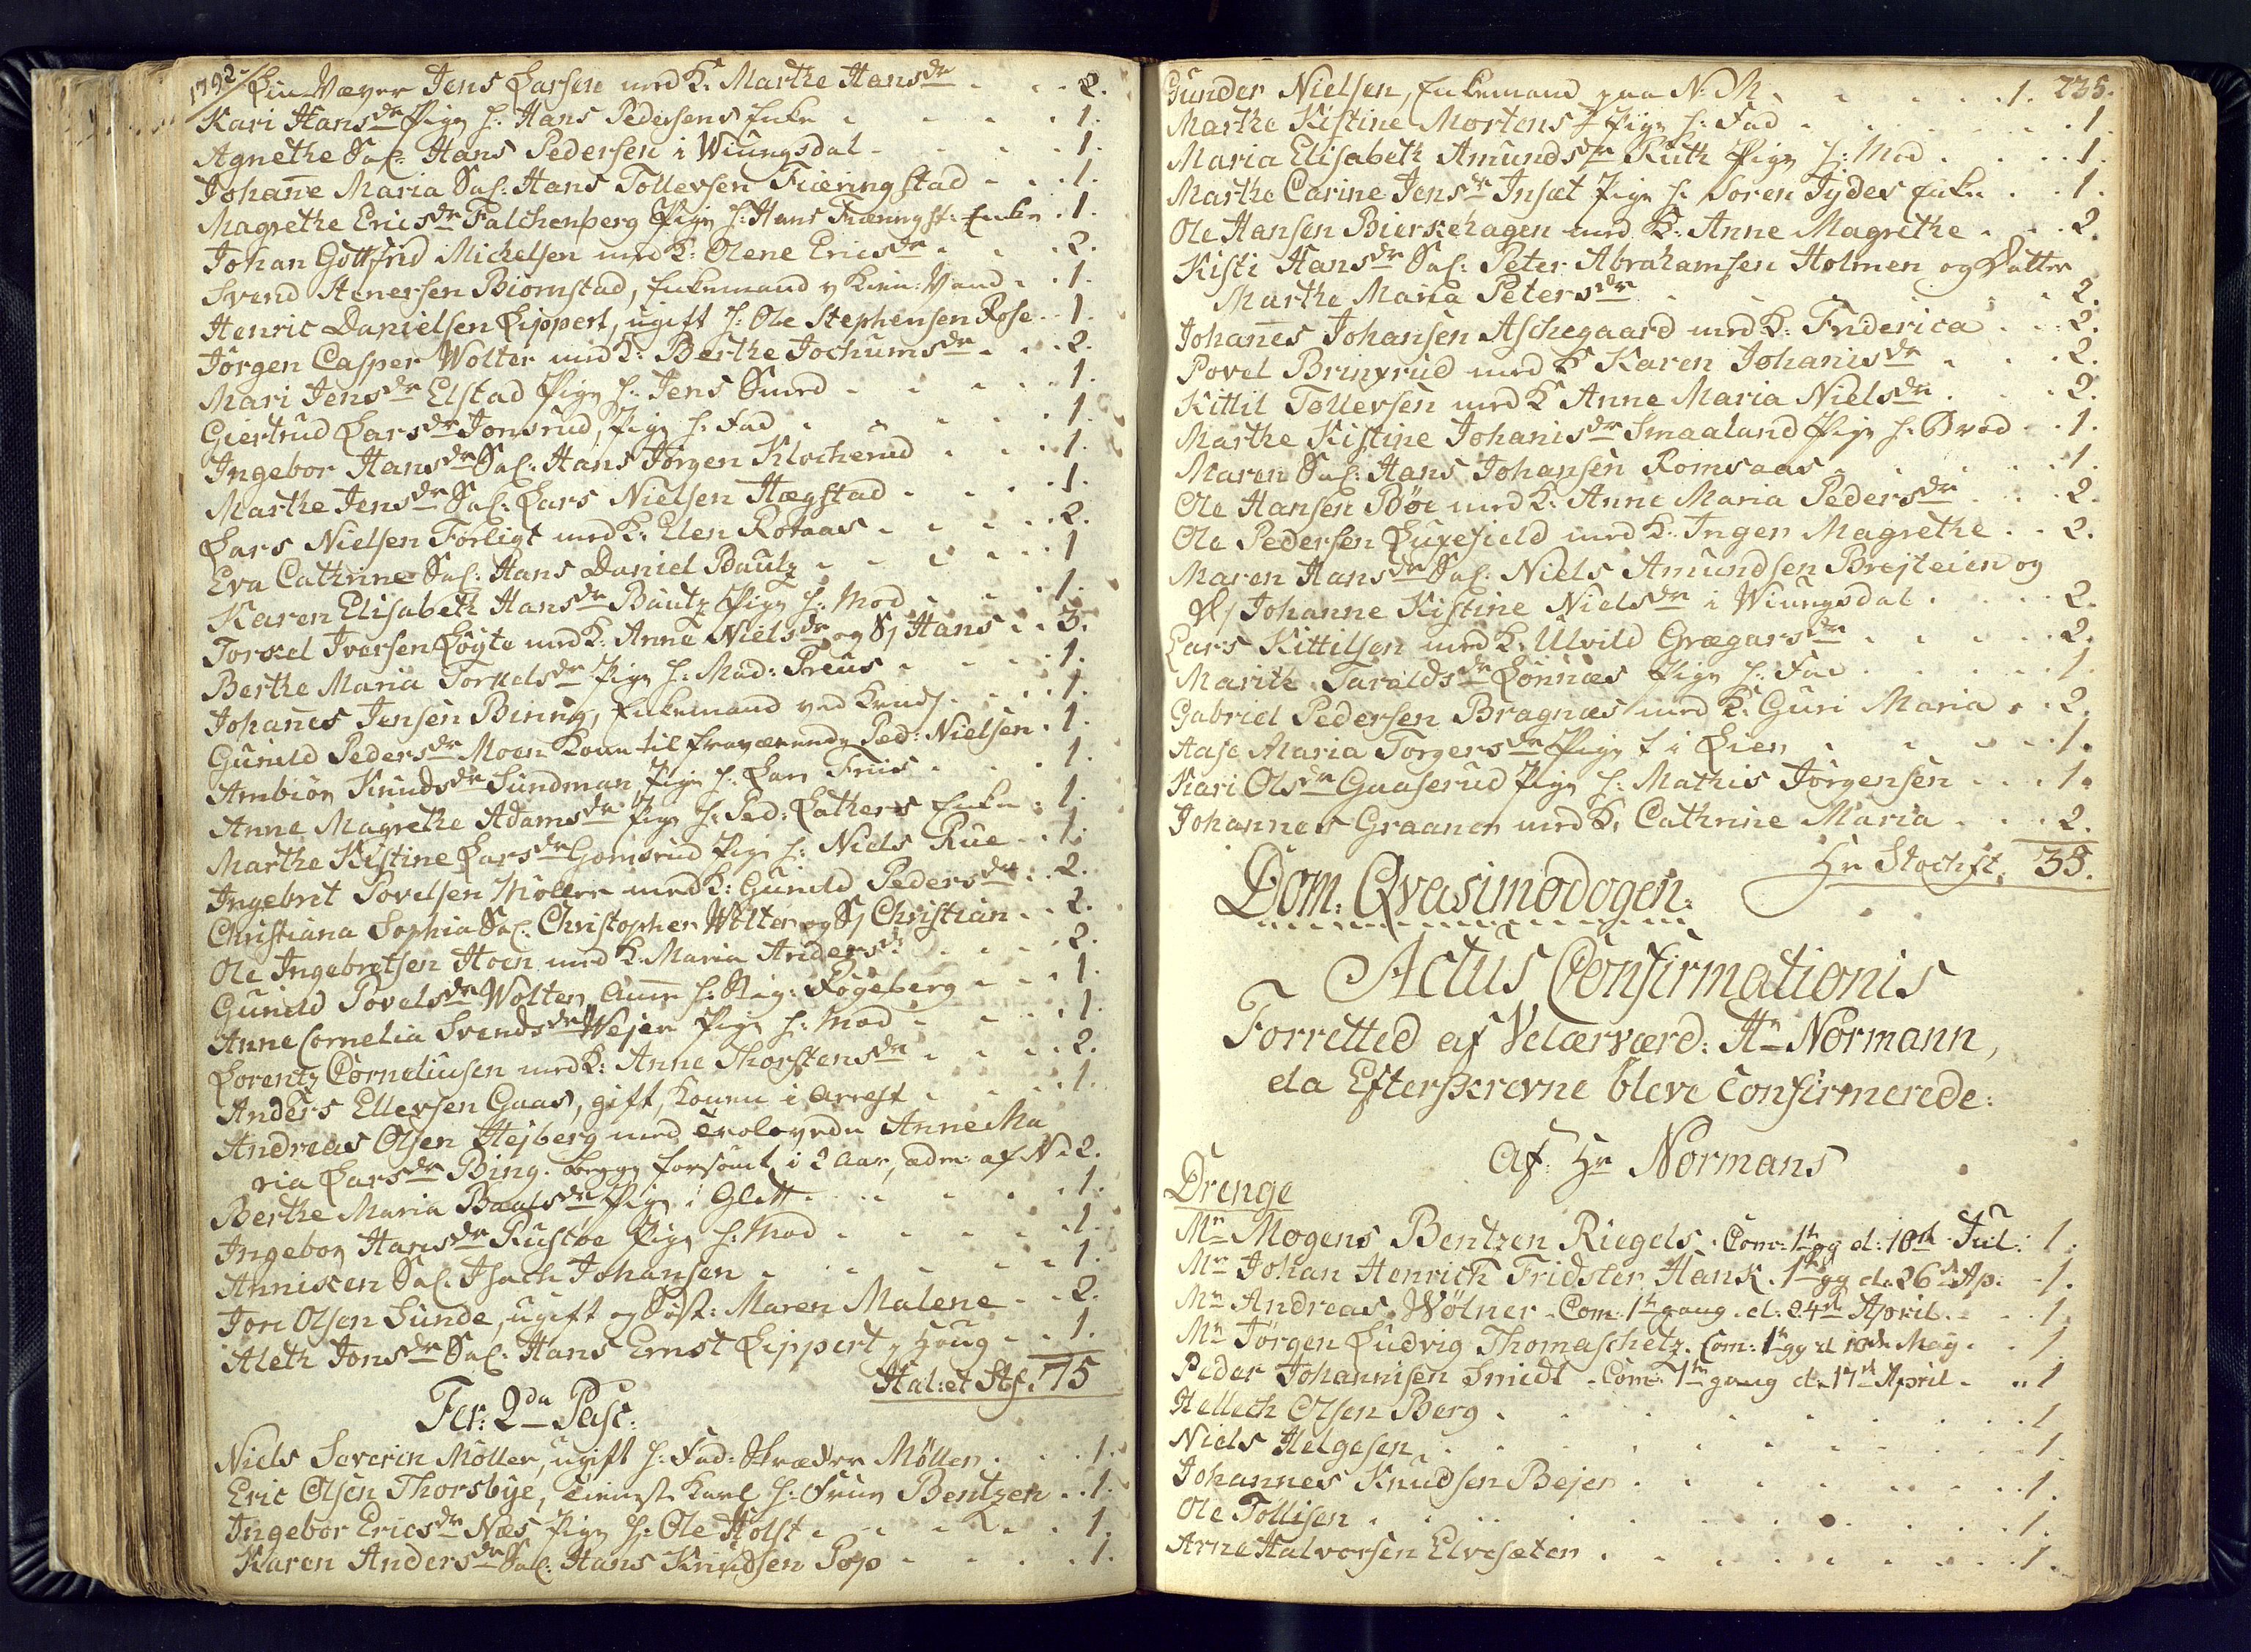 1792
Lin Væver Jens Larsen med K: Marthe Hansdr - - 2.
Kari Hansdr Pige h: Hans Pedersens Enke - - - 1.
Agnethe Sal: Hans Pedersen i Wiungsdal - - - 1.
Johane Maria Sal: Hans Tollevsen Fieringstad - - 1.
Magrethe Ericsdr Falchenberg Pige h: Hans Fieringst: Enke . 1.
Johan Gottfrid Michelsen med K: Olene Ericsdr - - - 2.
Svend Stenersen Biornstad, Enkemand v - 1.
Henric Danielsen Lippert, ugift h: Ole Stephensen Rose - 1.
Jörgen Casper Wolter med K: Berthe Jochumsdr - - 2.
Mari Jensdr Elstad Pige h: Jens Smed - - - 1.
Giertrud Larsdr Jonsrud, Pige h: Fad - - - 1.
Ingebor Hansdr Sal: Hans Jörgen Klocherud - - - 1.
Marthe Jensdr Sal: Lars Nielsen Hægstad - - - 1.
Lars Nielsen Förligt med K: Elen Rotaas - - - 2.
Eva Cathrine Sal: Hans Daniel Bautz - - - 1
Karen Elisabeth Hansdr Bautz Pige h: Mod - - - 1.
Torkel Iversen Löyte med K: Anne Nielsdr og S/ Hans - - 3.
Berthe Maria Torkelsdr Pige h: Mad: Preus - - - 1.
Johanes Jensen Bening, Enkemand ved - - - 1.
Gunild Pedersdr Moen Kone til fraværende Ped: Nielsen . 1.
Ambiör Knudsdr Sundman, Pige h: Lars Friis - - - 1.
Anne Magrethe Adamsdr Pige h: Ped: Lathers Enke - 1.
Marthe Kistine Larsdr Gomsrud Pige h: Niels Rue - - 1.
Ingebret Povelsen Möller med K: Gunild Pedersdr - 2.
Christiana Sophia Sal: Christopher Wolter og S/ Christian - - 2.
Ole Ingebretsen Hoen med K: Maria Andersdr - - - 2.
Gunild Povelsdr Wolter, Ame h: Fogeberg - - - 1.
Anne Cornelia Svendsdr Wejer Pige h: Mod - - - 1.
Lorentz Corneliusen med K: Anne Thorstensdr - - - 2.
Anders Ellevsen Gaas, gift, Konen i Arrest - - - 1.
Andreas Olsen Hejberg med Trolovede Anne Ma
ria Larsdr Bing. begge forsømt i 2 Aar, adm: af N - 2.
Berthe Maria Baalsdr Pige i Glitt - - - 1.
Ingebor Hansdr Rustöe Pige h: Mod - - - 1.
Anniken Sal: Isach Johansen - - - 1.
Jon Olsen Sunde, ugift og Søst: Maren Malene - - 2.
Aleth Jonsdr Sal: Hans Ernst Lippert, Houg - - 1.
Hal: et Stf. 75
Fer: 2da Pasc:
Niels Severin Möller, ugift h: Fad: Skræder Möller - - 1.
Eric Olsen Thorsbye, tienst Karl h: Frue Bentzen - - 1.
Ingebor Ericsdr Næs Pige h: Ole Holst - - - 1.
Karen Andersdr Sal: Hans Knudsen Pop - - - 1.
235.
Gunder Nielsen, Enkemand paa N. M. - - - 1.
Marthe Kistine Mortensd Pige h: Fad - - - 1.
Maria Elisabeth Amundsdr Ruth Pige h: Mod - - - 1.
Marthe Carine Jensdr Insæt Pige h: Soren Tydes Enke - - 1.
Ole Hansen Bierkehagen med K: Anne Magrethe - - 2.
Kisti Hansdr Sal: Peter Abrahamsen Holmen og Datter
Marthe Maria Petersdr - - - 2.
Johanes Johansen Aschegaard med K: Friderica - - 2.
Povel Brinxrud med K Karen Johanisdr - - 2.
Kittil Tollevsen med K Anne Maria Nielsdr - - 2.
Marthe Kistine Johanisdr Smaaland Pige h: Brod - - 1.
Maren Sal: Hans Johansen Romsaas - - - 1.
Ole Hansen Böe med K: Anne Maria Pedersdr - - - 2.
Ole Pedersen Luxefield med K: Inger Magrethe - - 2.
Maren Hansdr Sal: Niels Amundsen Brejteien og
D/ Johanne Kistine Nielsdr i Wiungsdal - - - 2.
Lars Kittilsen med K: Ulvild Grægarsdr - - - 2.
Marite Taraldsdr Lönnæs Pige h: Fad - - - 1.
Gabriel Pedersen Bragnæs med K: Guri Maria - - 2.
Aase Maria Torgersdr Pige t i Lien - - - 1.
Kari Olsdr Gaaserud Pige h: Mathis Jörgensen - - - 1.
Johannes Graaner med K: Cathrine Maria - - - 2.
Hr Stochft. 35.
Dom: Qvasimodogen:
Actus Confirmationis
Forretted af Velærværd: Hr Normann,
da Efterskrevne bleve confirmerede:
Af Hr Normans
Drenge
Mr Mogens Bentzen Riegels - Com: 1te gg d: 10de Jul: 1.
Mr Johan Henrich Fridster Hank. 1te gg d. 26de Ap: - 1.
Mr Andreas Wölner - Com: 1te gang d: 24de April - - 1.
Mr Jörgen Ludvig Thomaschetz. Com: 1te gg d 10de Maÿ - - 1
Peder Johannisen Smidt - Com: 1te gang d. 17de April - - 1
Hellech Olsen Berg - - - 1
Niels Helgesen - - - 1.
Johannes Knudsen Bejer - - - 1.
Ole Tollisen - - - 1.
Arne Halvorsen Elvesæter - - - 1.